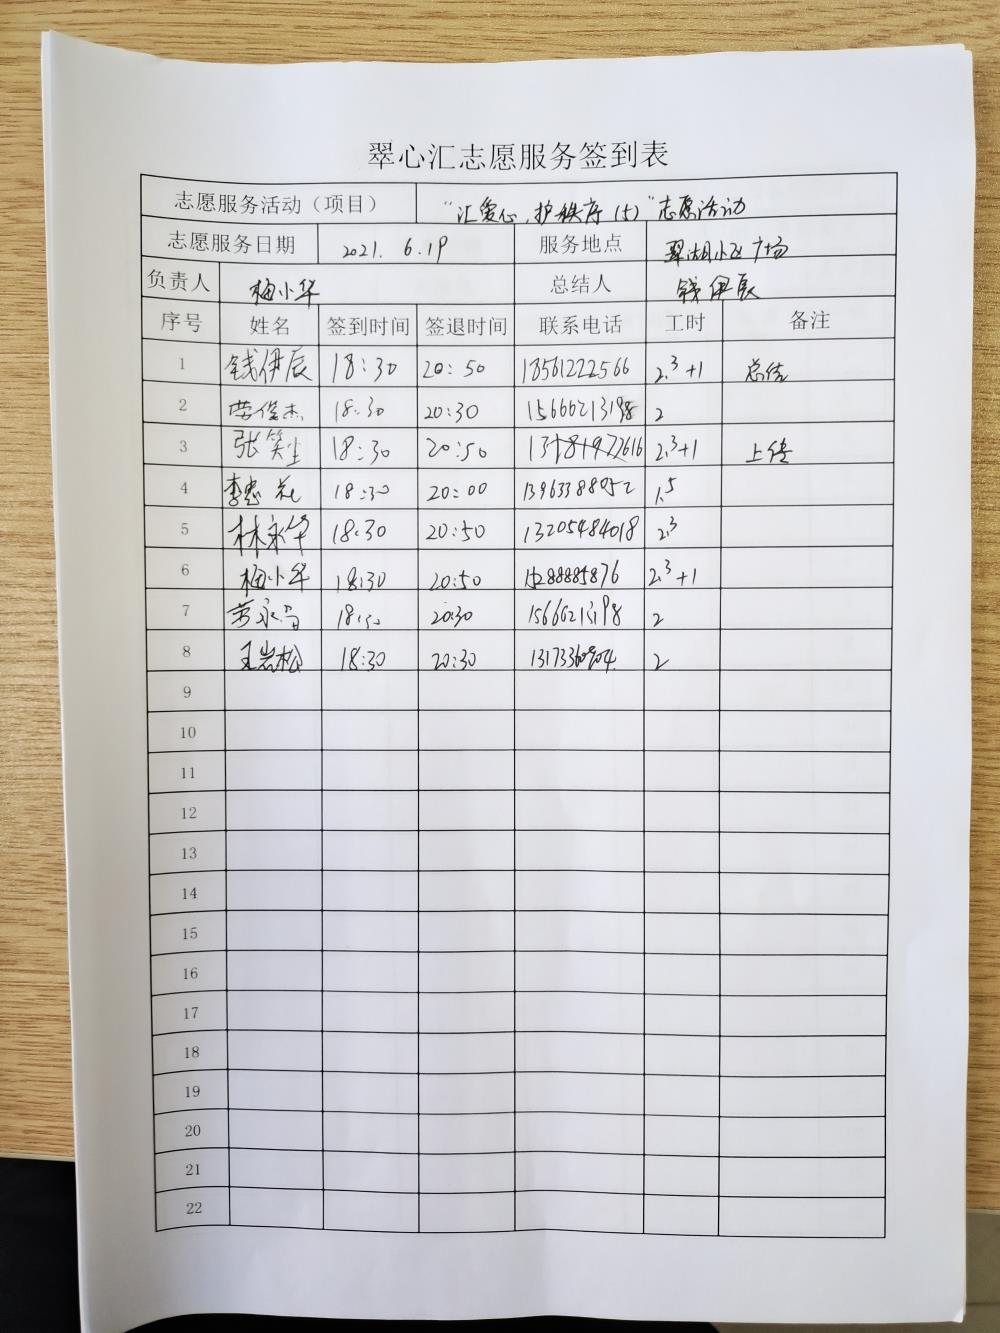 翠心汇志愿服务签到表
志愿服务活动（项目） “汇爱心,护秩序(5)”志愿活动
志愿服务日期 2021. 6.19 服务地点 翠湖小区广场
负责人 梅小华 总结人 钱伊辰
序号 姓名 签到时间 签退时间 联系电话 工时 备注
1 钱伊辰 18:30 20:50 18561222566 2.3+1 总结
2 劳俊杰 18:30 20:30 15666213198 2
3 张笑尘 18:30 20:50 2.3+1 上传
4 李惠花 18:30 20:00 13963388052 1.5
5 林永华 18:30 20:50 13205484018 2.3
6 梅小华 18:30 20:50 15288885876 2.3+1
7 劳永 18:30 20:30 15666213198 2
8 王岩松 18:30 20:30 2
9
10
11
12
13
14
15
16
17
18
19
20
21
22